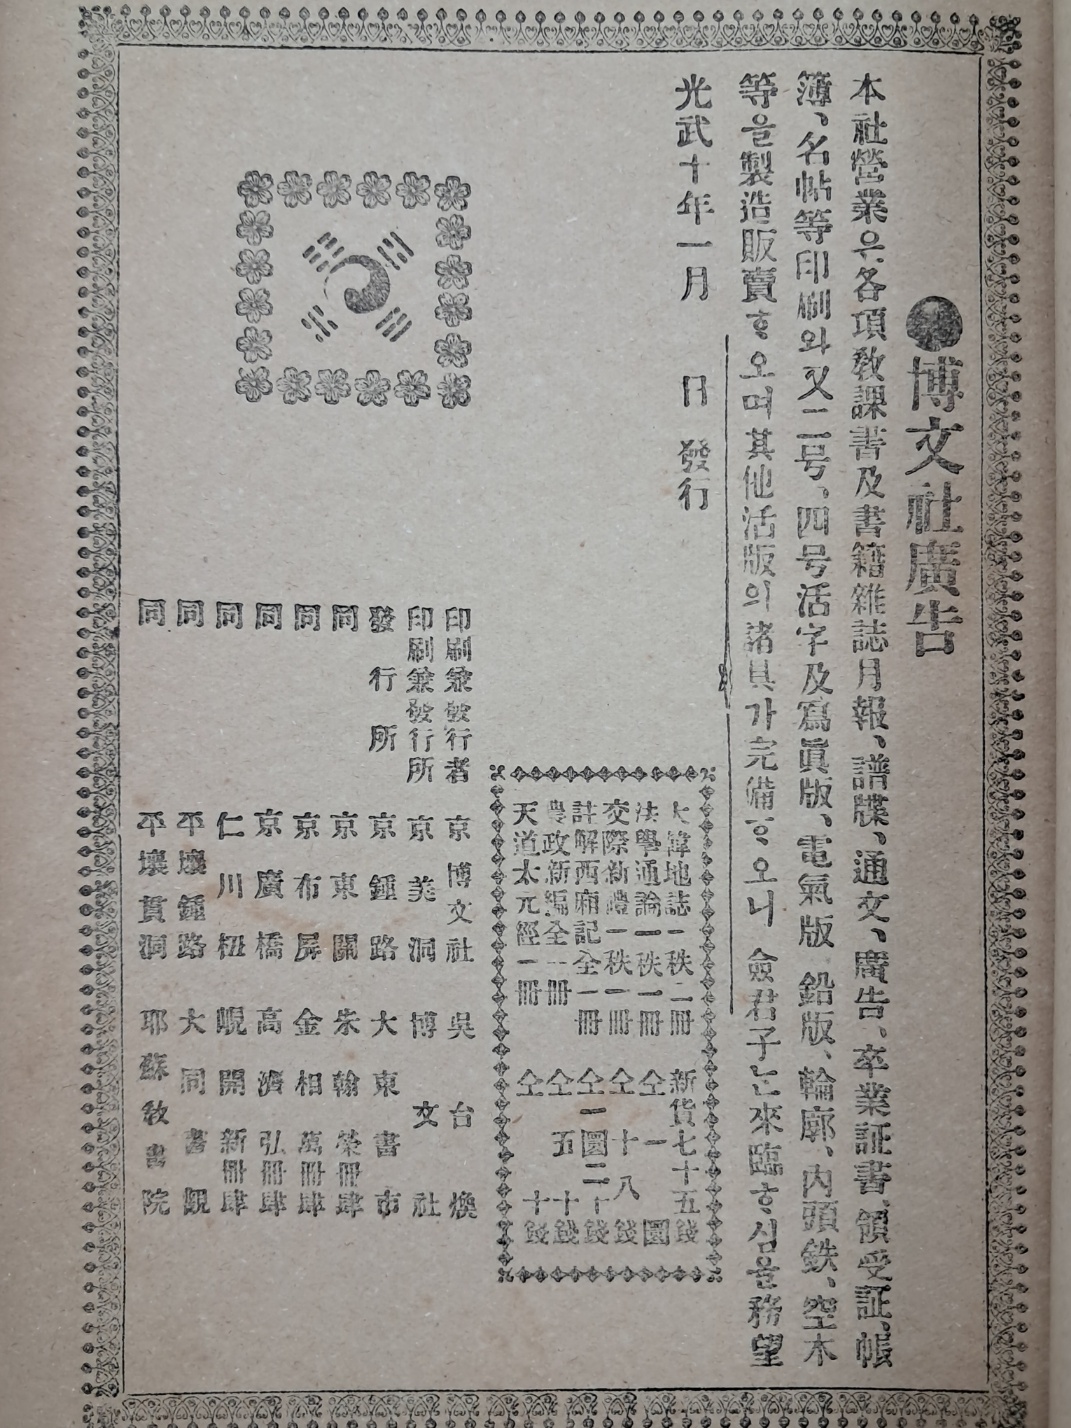 ●博文社廣告
本社營業은各項敎課書及書籍雜誌月報、譜牒、通文、廣告、卒業証書、領受証、帳
簿、名帖等印刷와又二号、四号活字及寫眞版、電氣版、鉛版、輪廓、內頭鉄、空木
等을製造販賣ᄒᆞ오며其他活版의諸具가完備ᄒᆞ오니 僉君子ᄂᆞᆫ來臨ᄒᆞ심을務望
光武十年一月 日 發行
大韓地誌一秩二冊 新貨七十五錢
法學通論一秩一冊 仝 一圜
交際新禮一秩一冊 仝 十八錢
註解西廂記全一冊 仝一圜二十錢
農政新編全一冊 仝 五十錢
天道太元經一冊 仝 十錢
印刷兼發行者 京 博文社 吳台煥
印刷兼發行所 京美洞 博文社
發行所 京鍾路 大東書市
同 京東關 朱翰榮冊肆
同 京布屏 金相萬冊肆
同 京廣橋 高濟弘冊肆
同 仁川杻峴 開新冊肆
同 平壤鍾路 大同書觀
同 平壤貫洞 耶蘇敎書院